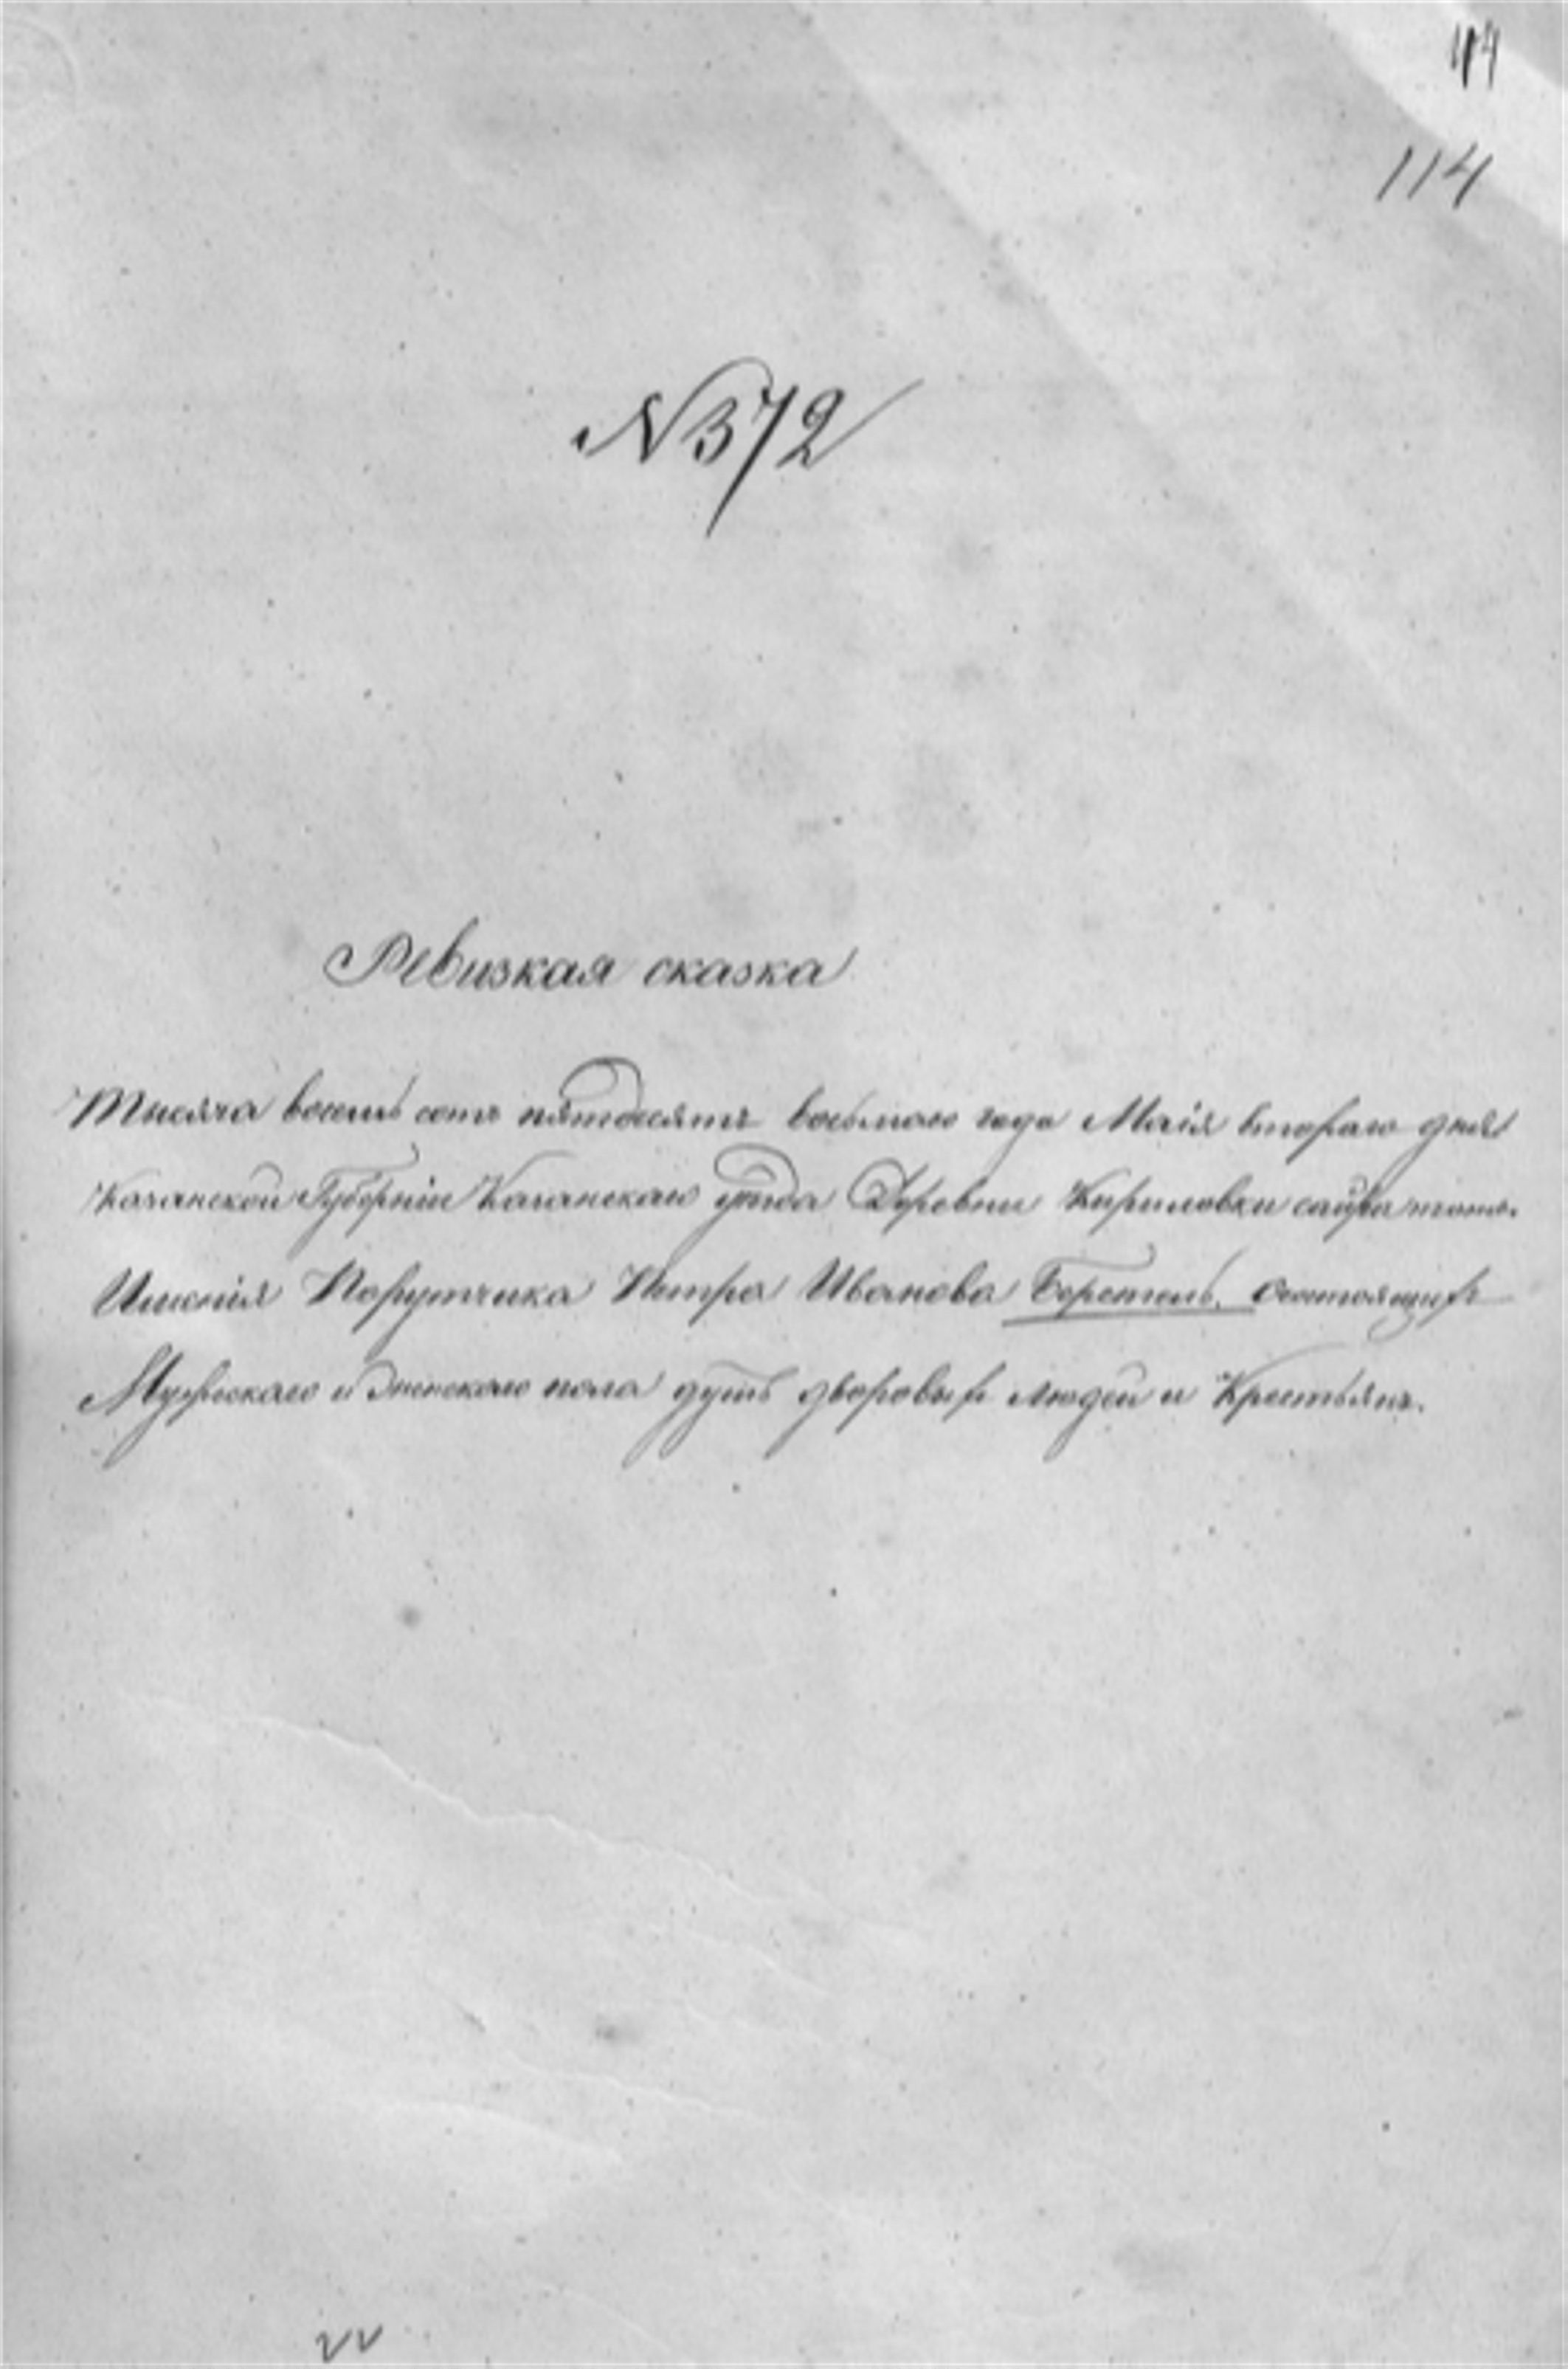 114
114
N 372
Ревизкая сказка
Тысяча восемь сотъ пятдесятъ восьмаго года Маія втораго дня
Казанской Губерніи Казанскаго уѣзда Деревни Кириловки
Имѣнія Порутчика Петра Иванова Беретель. состоящихъ
Мужескаго и Женскаго пола душъ дворовыхъ людей и Крестьянъ.